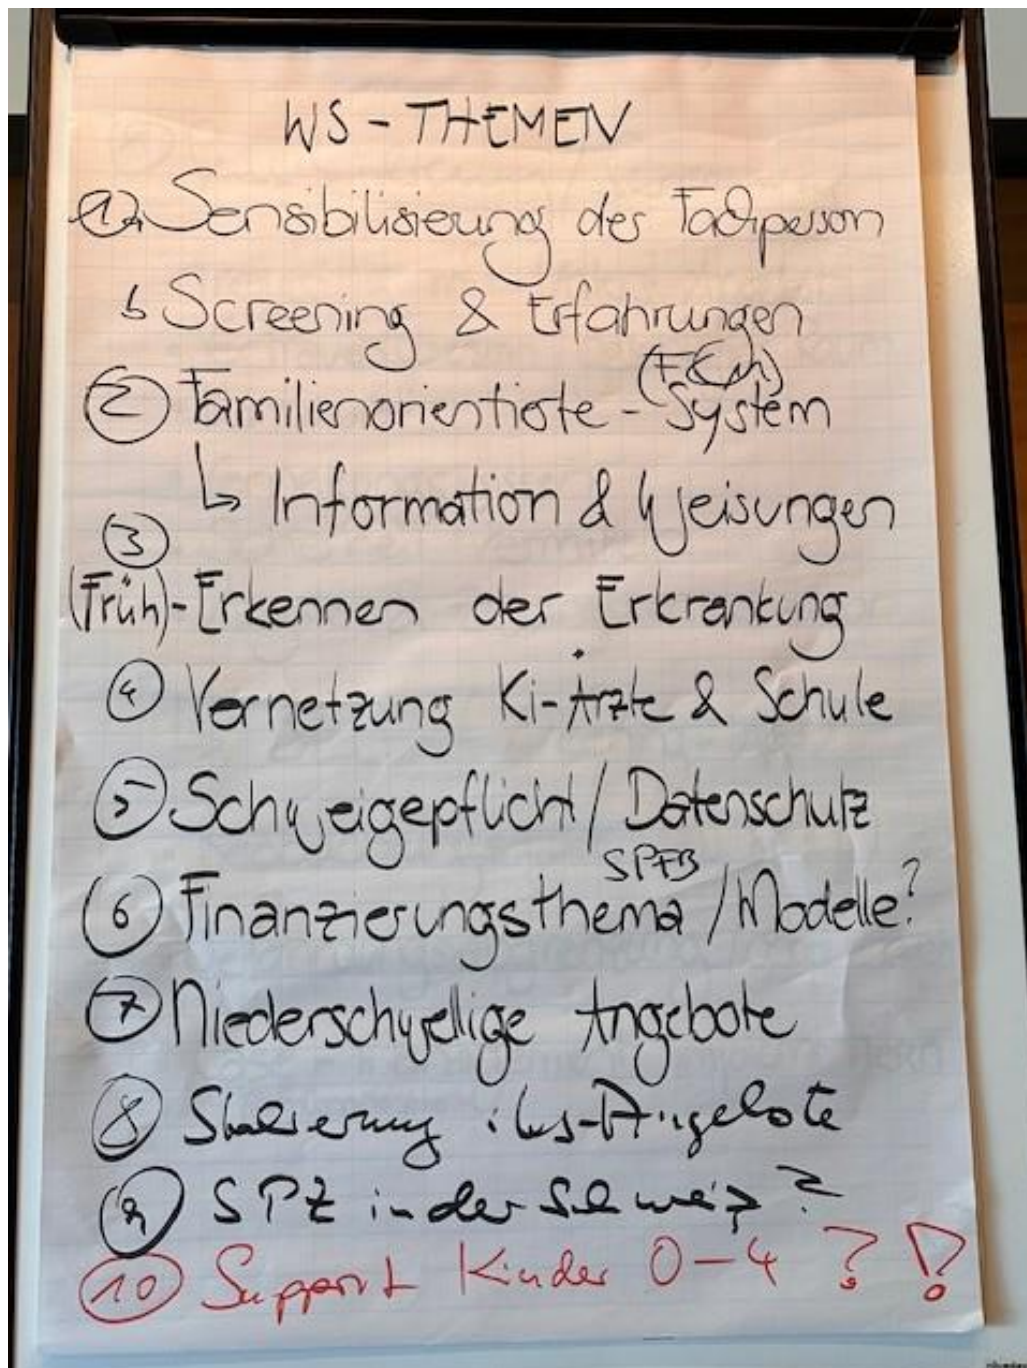 WS - THEMEN
1. Sensibilisierung der Fachperson
↳ Screening & Erfahrungen
② Familienorientierte - System
↳ Information & Weisungen
③
(Früh)-Erkennen der Erkrankung
④ Vernetzung Ki-Ärzte & Schule
⑤ Schweigepflicht / Datenschutz
SPFB
⑥ Finanzierungsthema / Modelle?
⑦ Niederschwellige Angebote
⑧ -Angebote
⑨ SPZ in der Schweiz?
⑩ Support Kinder 0-4 ? !